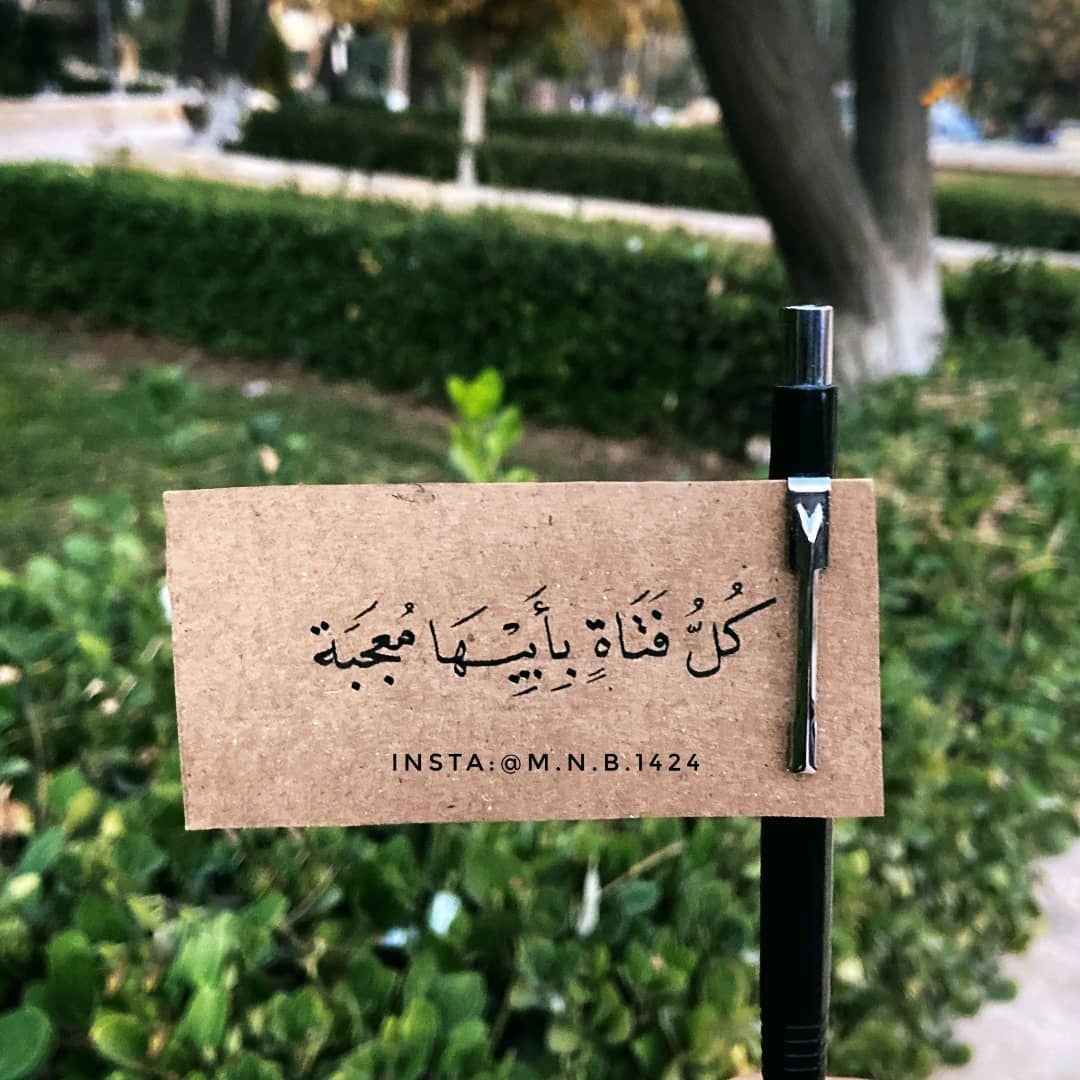 كُلُّ فَتَاةٍ بِأَبِيْهَا مُعجَبَة
INSTA:@M.N.B.1424